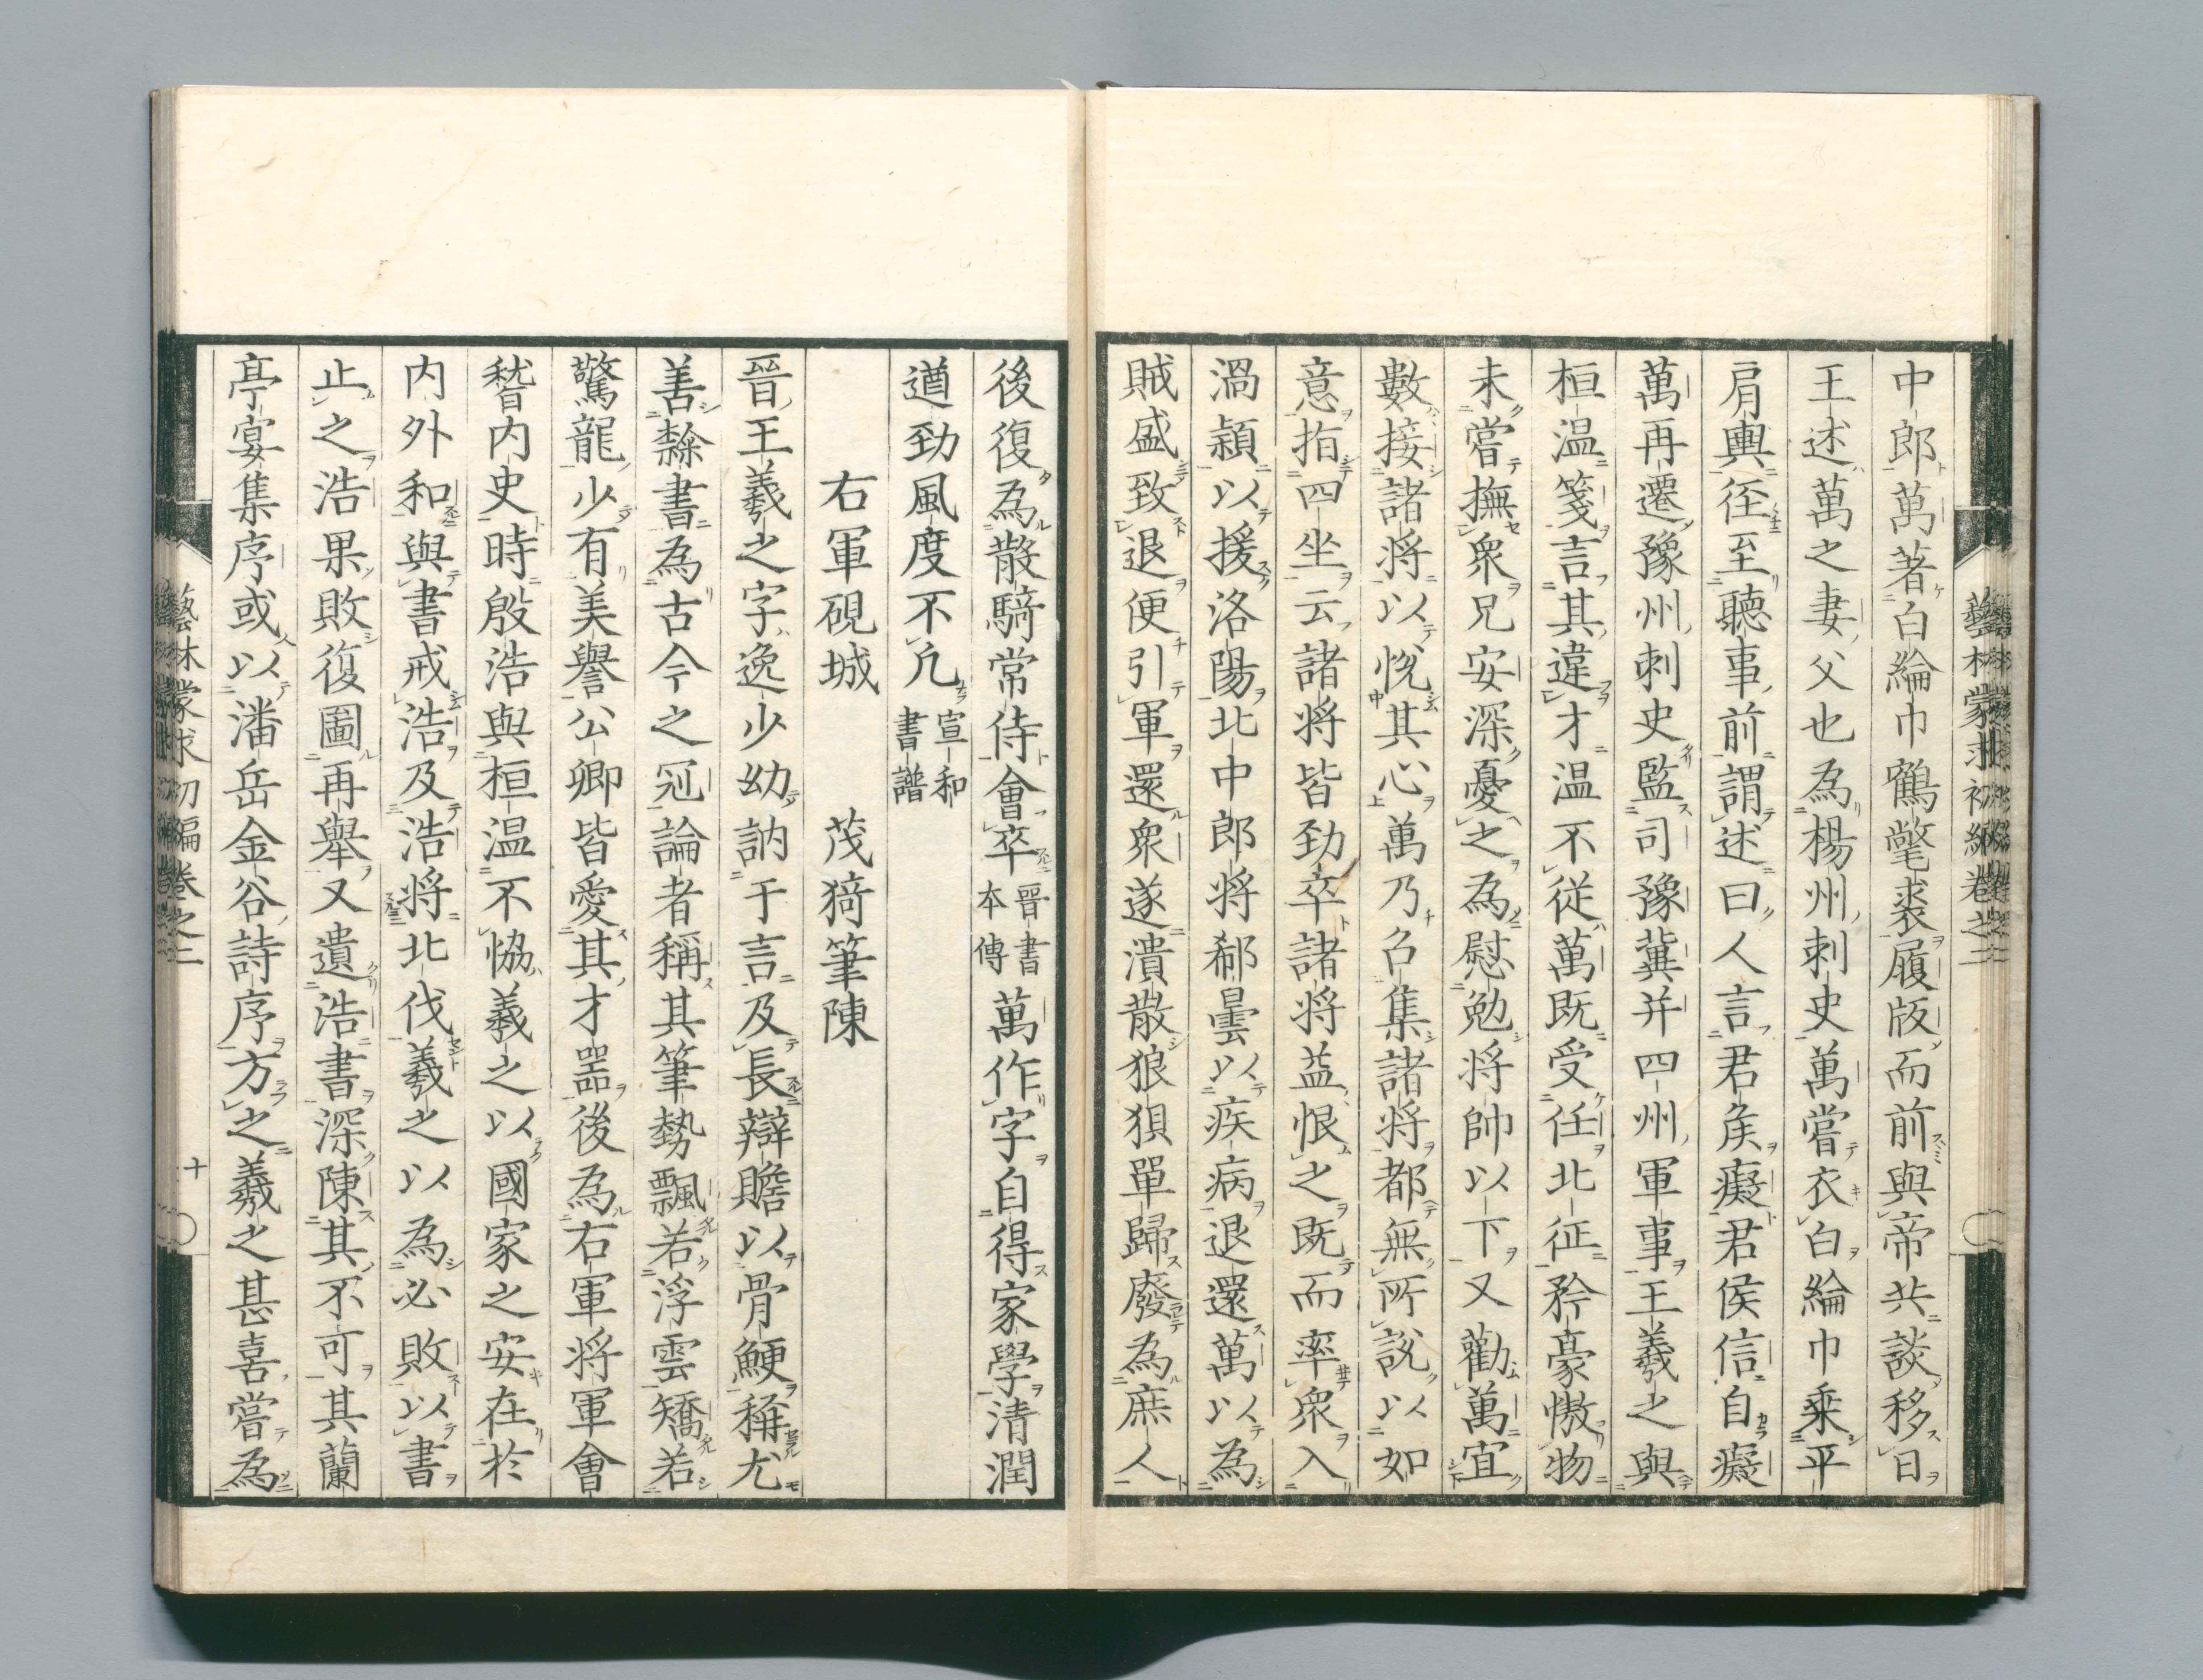 中郎萬著白綸巾鶴氅裘履版而前與帝共談移日
王述萬之妻父也為楊州刺史萬嘗衣白綸巾乗平
肩輿徑至聽事前謂述曰人言君矦癡君侯信自癡
萬再遷豫州刺史監司豫冀并四州軍事王羲之與
桓温箋言其違才温不從萬既受任北征矜豪慠物
未嘗撫衆兄安深憂之為慰勉將帥以下又勸萬宜
數接諸將以恱其心萬乃召集諸將都無所説以如
意指四坐云諸將皆勁卒諸將益恨之既而率衆入
渦潁以援洛陽北中郎將郗曇以疾病退還萬以為
賊盛致退便引軍還衆遂潰散狼狽單歸廢為庶人
藝林蒙求初編卷之二
後復為散騎常侍會卒晉書本傳萬作字自得家學清潤
遒勁風度不凡宣和書譜
右軍硯城　茂猗筆陳
晉王羲之字逸少幼訥于言及長辯贍以骨鯁稱尤
善隸書為古今之冠論者稱其筆勢飄若浮雲矯若
驚龍少有美譽公卿皆愛其才器後為右軍將軍會
稽内史時殷浩與桓温不恊羲之以國家之安在於
内外和與書戒浩及浩將北伐羲之以為必敗以書
止之浩果敗復圖再舉又遺浩書深陳其不可其蘭
亭宴集序或以潘岳金谷詩序方之羲之甚喜嘗為
藝林蒙求初編卷之二　十